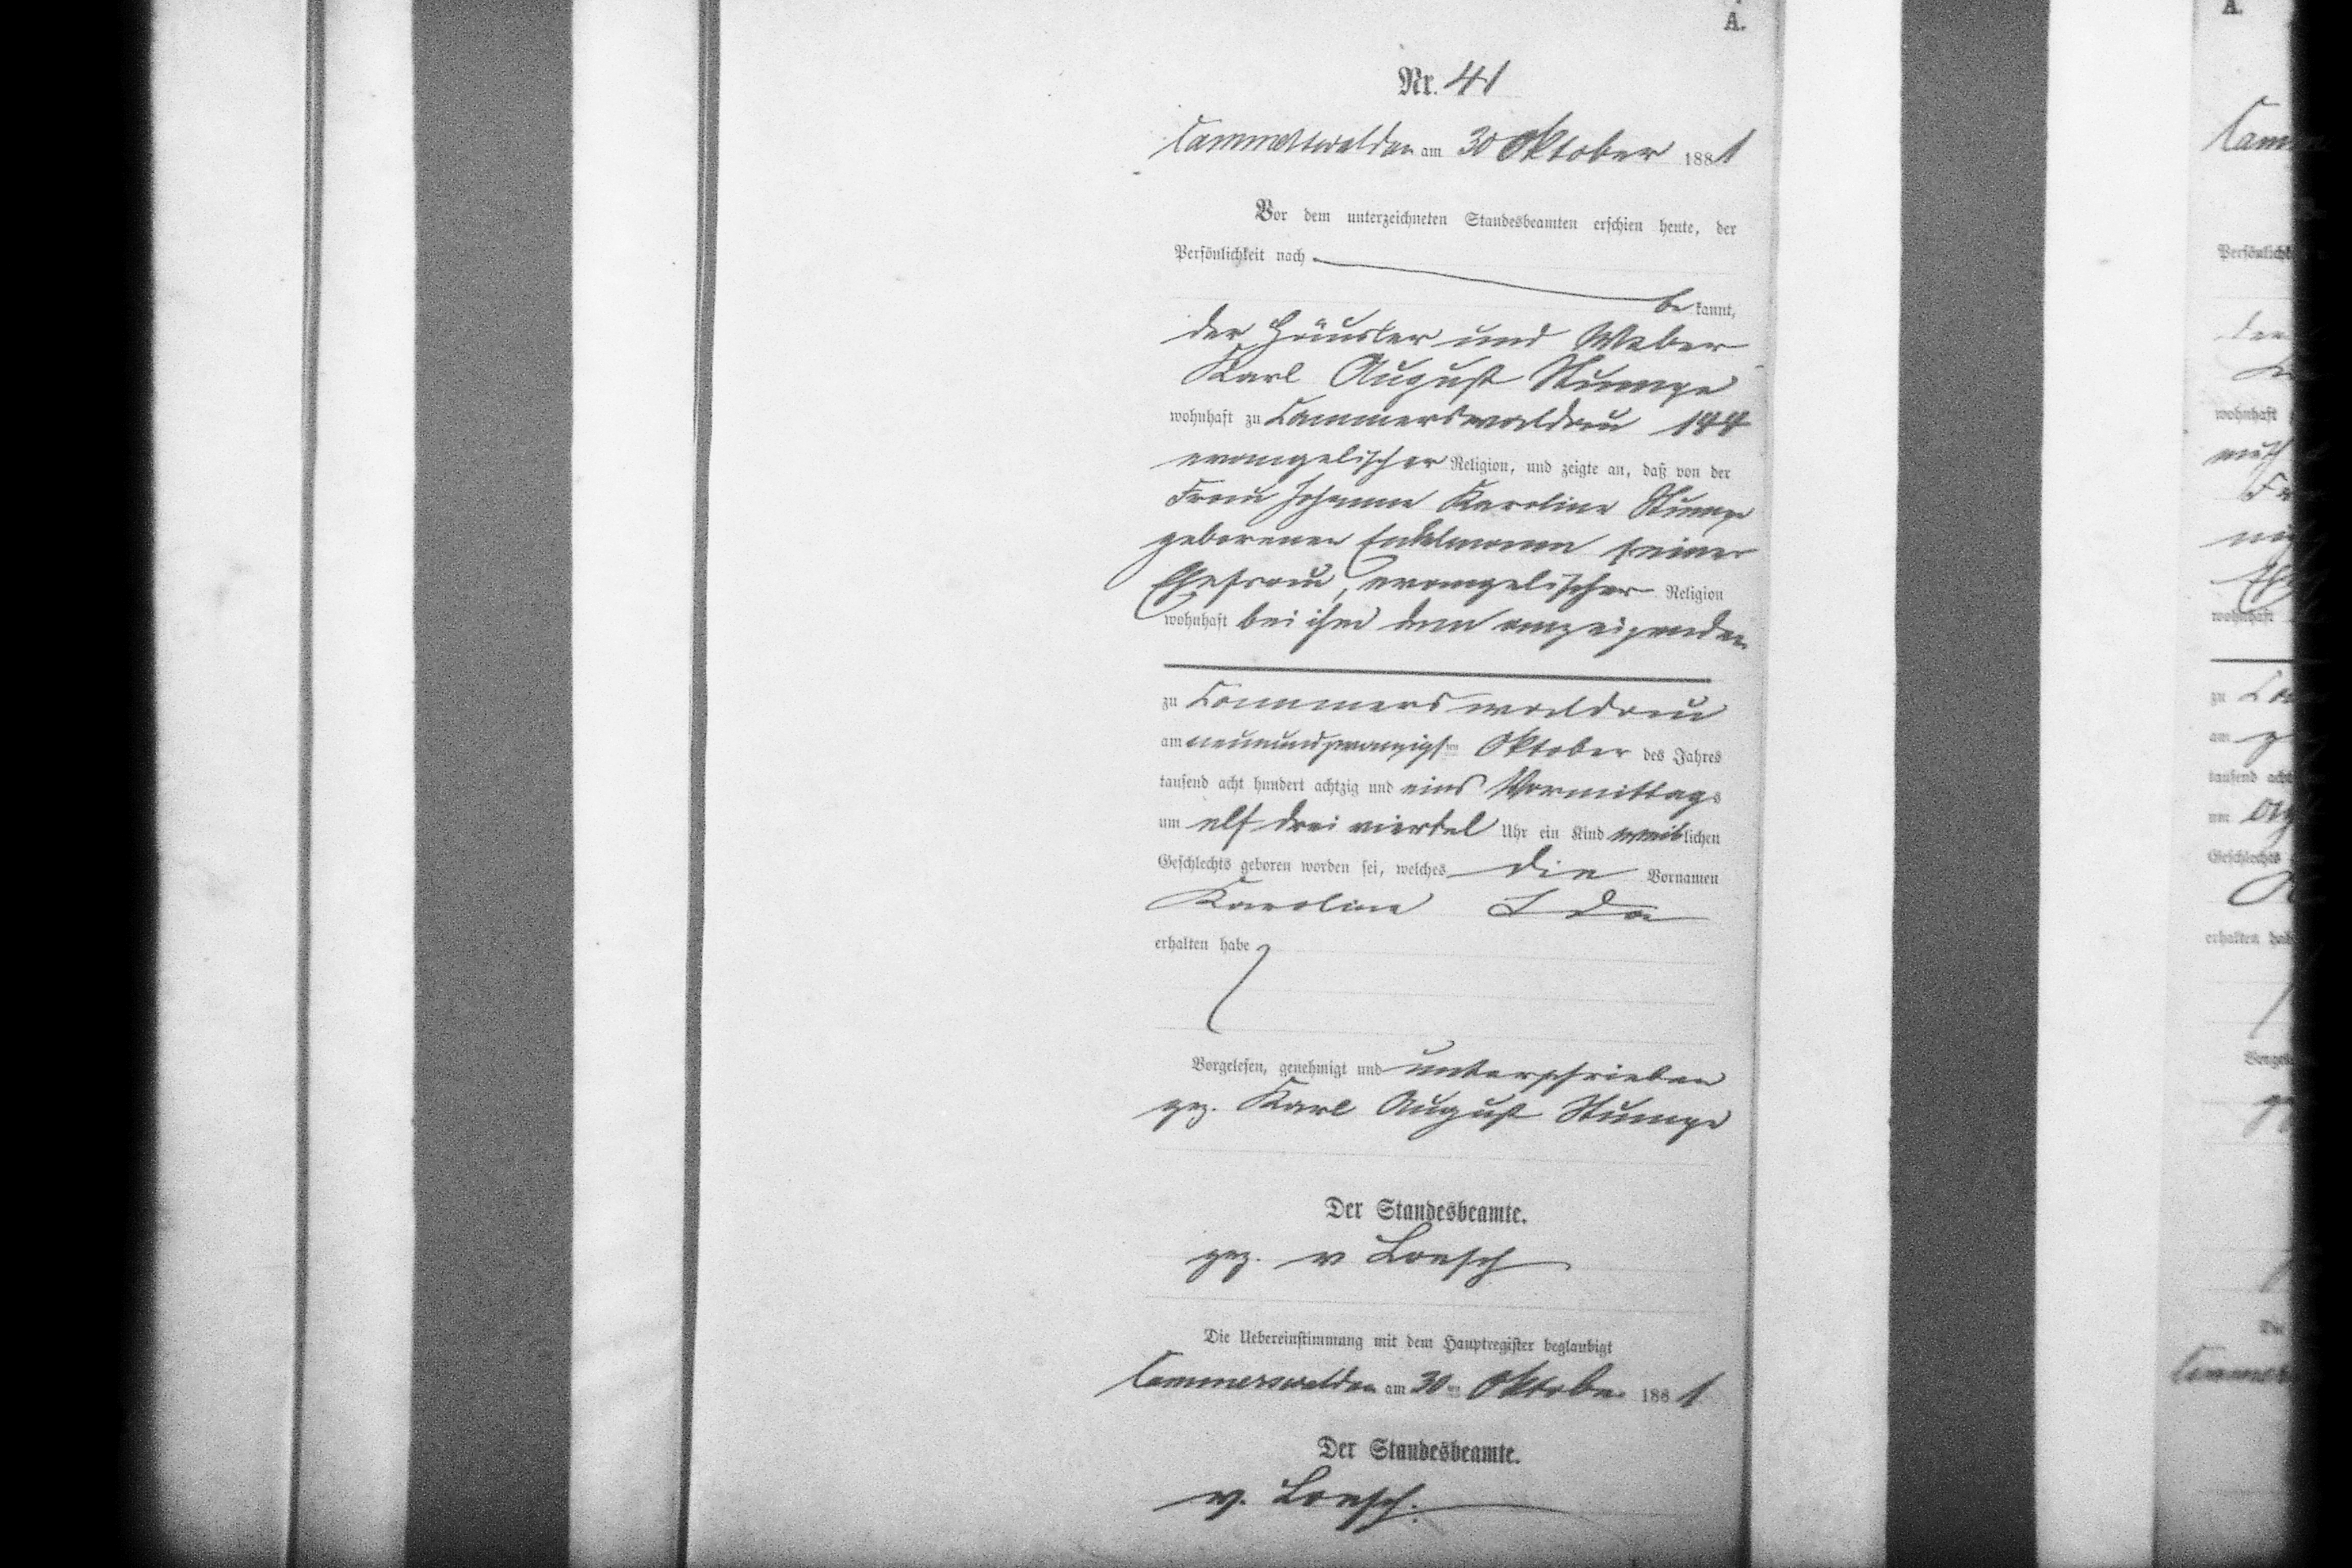 A.
Nr. 41
Cammerswaldau am 30 Oktober 1881
Vor dem unterzeichneten Standesbeamten erschien heute, der
Persönlichkeit nach
be kannt,
der Häusler und Weber
Karl August Stumpe
wohnhaft zu Cammerswaldau 144
evangelischer Religion, und zeigte an, daß von der
Frau Johanne Karoline Stumpe
geborenen seiner
Ehefrau, evangelischer Religion
wohnhaft bei ihm dem anzeigenden
zu Cammerswaldau
am neunundzwanzigsten Oktober des Jahres
tausend acht hundert achtzig und eins Vormittags
um elf drei viertel Uhr ein Kind weiblichen
Geschlechts geboren worden sei, welches die Vornamen
Karoline Ida
erhalten habe
Vorgelesen, genehmigt und unterschrieben
gez. Karl August Stumpe
Der Standesbeamte.
gez. v Loesch
Die Uebereinstimmung mit dem Hauptregister beglaubigt
Cammerswaldau am 30ten Oktober 1881
Der Standesbeamte.
v. Loesch.
A.